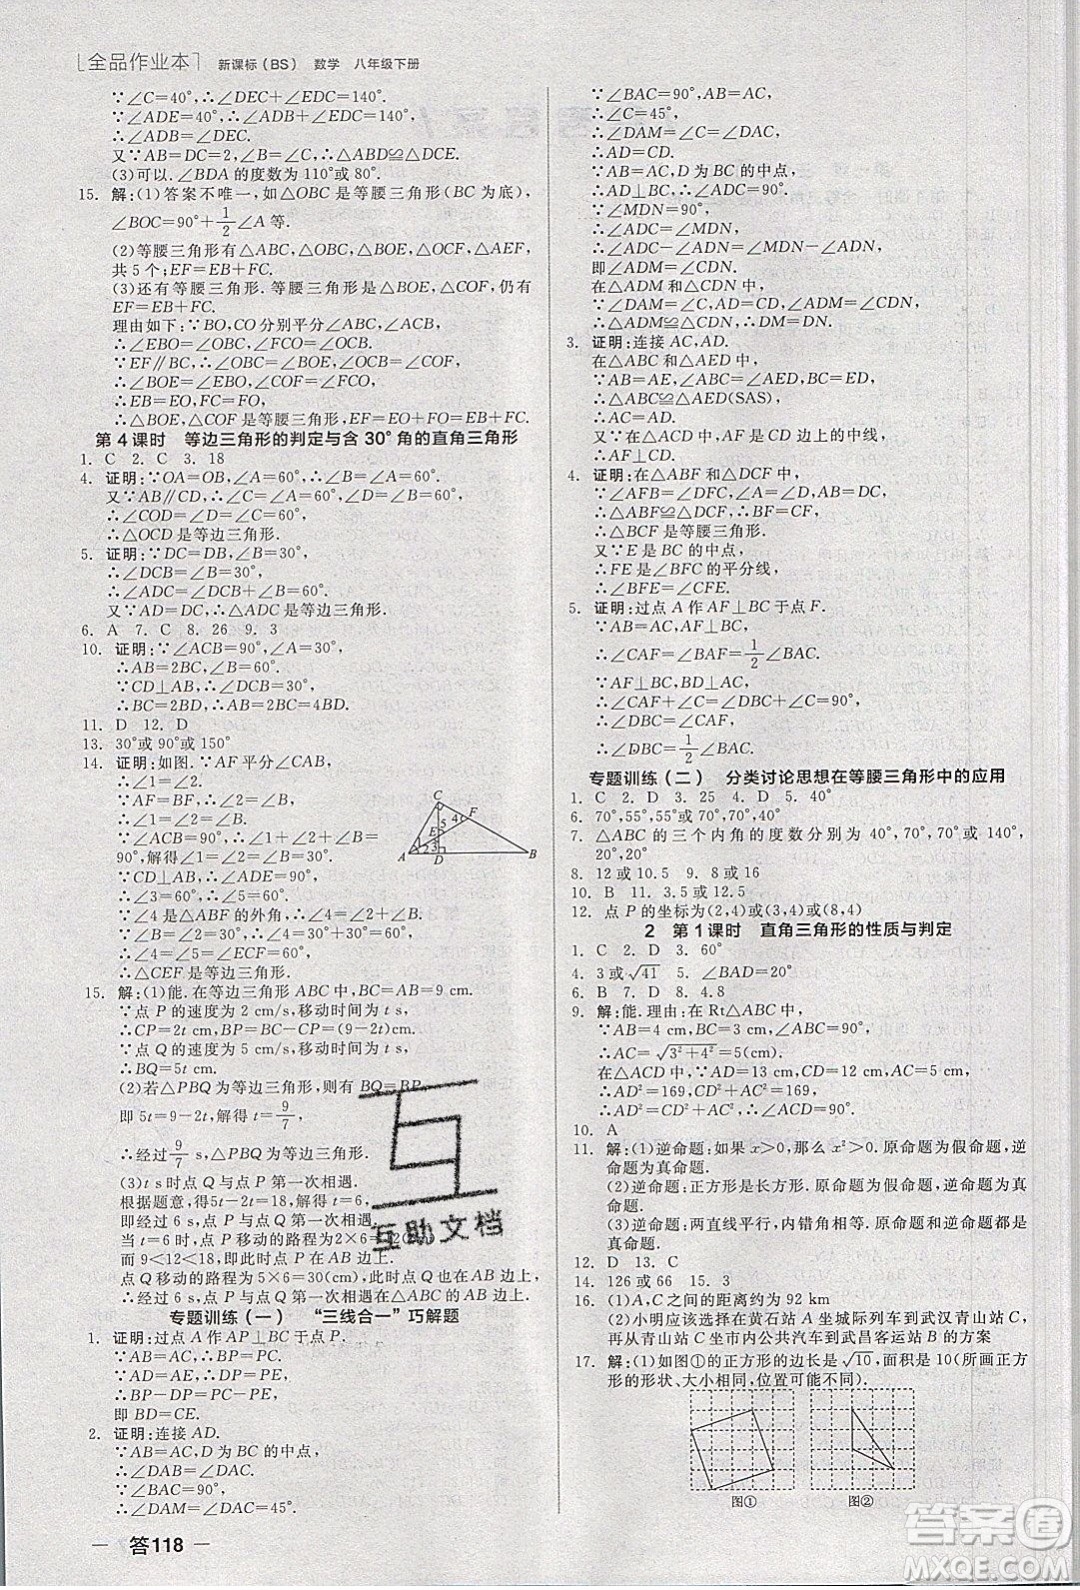 全品作业本 新课标(BS) 数学 八年级下册
∵∠C=40°,∴∠DEC+∠EDC=140°.
∵∠ADE=40°,∴∠ADB+∠EDC=140°,
∴∠ADB=∠DEC.
又∵AB=DC=2,∠B=∠C,∴△ABD≌△DCE.
(3)可以.∠BDA的度数为110°或80°.
15. 解:(1)答案不唯一,如△OBC是等腰三角形(BC为底),
∠BOC=90°+1/2∠A等.
(2)等腰三角形有△ABC,△OBC,△BOE,△OCF,△AEF,
共5个;EF=EB+FC.
(3)还有等腰三角形.等腰三角形是△BOE,△COF,仍有
EF=EB+FC.
理由如下:∵BO,CO分别平分∠ABC,∠ACB,
∴∠EBO=∠OBC,∠FCO=∠OCB.
∵EF∥BC,∴∠EOB=∠OBC,∠FOC=∠OCB.
∴∠EOB=∠EBO,∠FOC=∠FCO,
∴EB=EO,FC=FO,
∴△BOE,△CFO是等腰三角形,EF=EO+FO=EB+FC.
第4课时 等边三角形的判定与含30°角的直角三角形
1. C 2. C 3. 18
4. 证明:∵OA=OB,∠A=60°,∴∠B=∠A=60°.
又∵AB∥CD,∴∠C=∠A=60°,∠D=∠B=60°,
∴∠COD=∠C=∠D=60°,
∴△OCD是等边三角形.
5. 证明:∵DC=DB,∠B=30°,
∴∠DCB=∠B=30°,
∴∠ADC=∠DCB+∠B=60°.
又∵AD=DC,∴△ADC是等边三角形.
6. A 7. C 8. 26 9. 3
10. 证明:∵∠ACB=90°,∠A=30°,
∴AB=2BC,∠B=60°.
∵CD⊥AB,∴∠DCB=30°,
∴BC=2BD,∴AB=2BC=4BD.
11. D 12. D
13. 30°或90°或150°
14. 证明:如图.∵AF平分∠CAB,
∴∠1=∠2.
∵∠1=∠B,
∴∠1=∠2=∠B.
∵∠ACB=90°,∴∠1+∠2+∠B=
90°,解得∠1=∠2=∠B=30°.
∵CD⊥AB,∴∠ADC=90°,
∴∠3=60°,∴∠5=∠3=60°.
∵∠4是△ABF的外角,∴∠4=∠2+∠B=60°,
∴∠4=∠5=∠ECF=60°,
∴△CEF是等边三角形.
15. 解:(1)能.在等边三角形ABC中,BC=AC=9 cm.
∵点P的速度为2 cm/s,移动时间为t s,
∴CP=2t cm,BP=BC-CP=(9-2t)cm.
∵点Q的速度为5 cm/s,移动时间为t s,
∴BQ=5t cm.
(2)若△PBQ为等边三角形,则有BQ=BP,
即5t=9-2t,解得t=9/7,
∴经过9/7 s,△PBQ为等边三角形.
(3)t s时点P与点Q第一次相遇.
根据题意,得5t-2t=18,解得t=6,
即经过6 s,点P与点Q第一次相遇.
当t=6时,点P移动的路程为2×6=12(cm),
而9<12<18,此时点P在AB边上,
点Q移动的路程为5×6=30(cm),此时点Q也在AB边上,
∴经过6 s,点P与点Q第一次在AB边上相遇.
专题训练(一) “三线合一”巧解题
1. 证明:过点A作AP⊥BC于点P.
∵AB=AC,∴BP=PC.
∵AD=AE,∴DP=PE,
∴BP-DP=PC-PE,
即BD=CE.
2. 证明:连接AD.
∵AB=AC,D为BC的中点,
∴∠DAB=∠DAC.
∵∠BAC=90°,
∴∠DAM=∠DAC=45°.
∵∠BAC=90°,AB=AC,
∴∠C=45°,
∴∠DAM=∠C=∠DAC,
∴AD=CD.
∵AB=AC,D为BC的中点,
∴AD⊥BC,∴∠ADC=90°.
∵∠MDN=90°,
∴∠MDN=∠ADC,
∴∠MDN-∠ADN=∠ADC-∠ADN,
即∠ADM=∠CDN.
在△ADM和△CDN中,
∵∠DAM=∠C,AD=CD,∠ADM=∠CDN,
∴△ADM≌△CDN,∴DM=DN.
3. 证明:连接AC,AD.
在△ABC和△AED中,
∵AB=AE,∠B=∠E,BC=ED,
∴△ABC≌△AED(SAS),
∴AC=AD.
又∵在△ACD中,AF是CD边上的中线,
∴AF⊥CD.
4. 证明:在△ABF和△DCF中,
∵∠AFB=∠DFC,∠A=∠D,AB=DC,
∴△ABF≌△DCF,∴BF=CF,
∴△BCF是等腰三角形.
又∵E是BC的中点,
∴FE是∠BFC的平分线,
∴∠BFE=∠CFE.
5. 证明:过点A作AF⊥BC于点F.
∵AB=AC,AF⊥BC,
∴∠CAF=∠BAF=1/2∠BAC.
∵AF⊥BC,CD⊥AB,
∴∠CAF+∠C=∠BDC+∠C,
∴∠BDC=∠CAF,
∴∠DBC=1/2∠BAC.
专题训练(二) 分类讨论思想在等腰三角形中的应用
1. C 2. D 3. 25 4. D 5. 40°
6. 70°,55°,55°或70°,70°,40°
7. △ABC的三个内角的度数分别为40°,70°,70°或140°,
20°,20°
8. 12或10.5 9. 8或16
10. B 11. 3.5或12.5
12. 点P的坐标为(2,4)或(3,4)或(8,4)
2 第1课时 直角三角形的性质与判定
1. C 2. D 3. 60°
4. 3或√41 5. ∠BAD=20°
6. B 7. D 8. 4.8
9. 解:能.理由:在Rt△ABC中,
∵AB=4 cm,BC=3 cm,∠B=90°,
∴AC=√(3²+4²)=5(cm).
在△ACD中,∵AD=13 cm,CD=12 cm,
∴AD²=169,CD²=144,AC²=25,
∴AC²+CD²=AD²,∴∠ACD=90°.
10. A
11. 解:(1)逆命题:如果x>0,那么x²>0.原命题为假命题,逆
命题为真命题.
(2)逆命题:正方形是长方形.原命题为假命题,逆命题为真
命题.
(3)逆命题:两直线平行,内错角相等.原命题和逆命题均为
真命题.
12. D 13. C
14. 126或66 15. 3
16. (1)A,C之间的距离约为92 km
(2)小明应该选择由黄石站A坐城际列车到武汉青山站C,
再从青山站C坐市内公共汽车到武昌客运站B的方案
17. 解:(1)如图①的正方形的边长是√10,面积是10(所画正方
形的形状、大小相同,位置可以不同).
C
5 4 F
1 E
2 3
A D B
图① 图②
答118
互助文档
答案圈
MXQE.COM